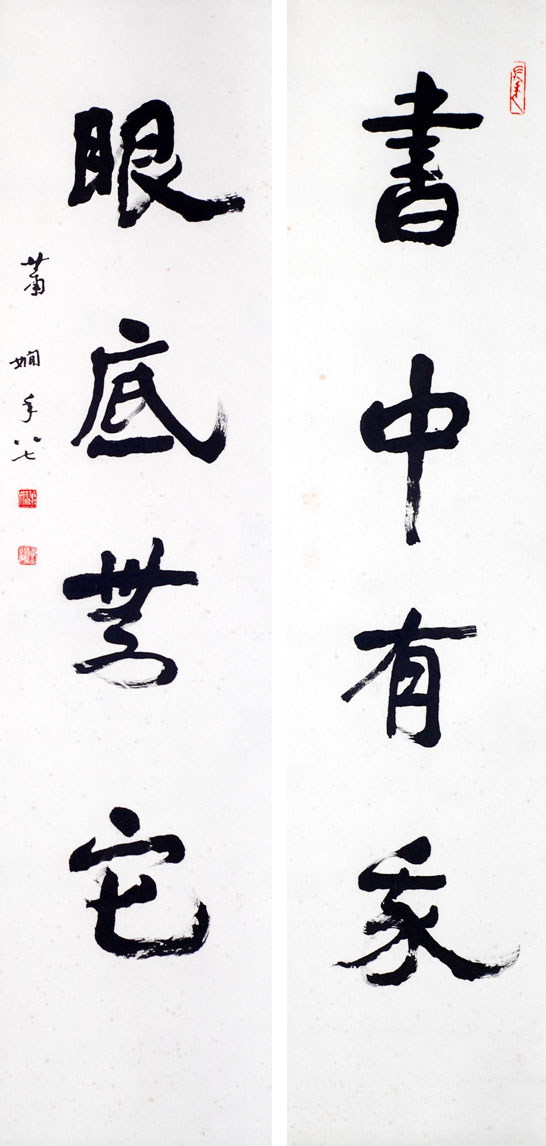 書中有我
眼底無它
蕭嫻年八七